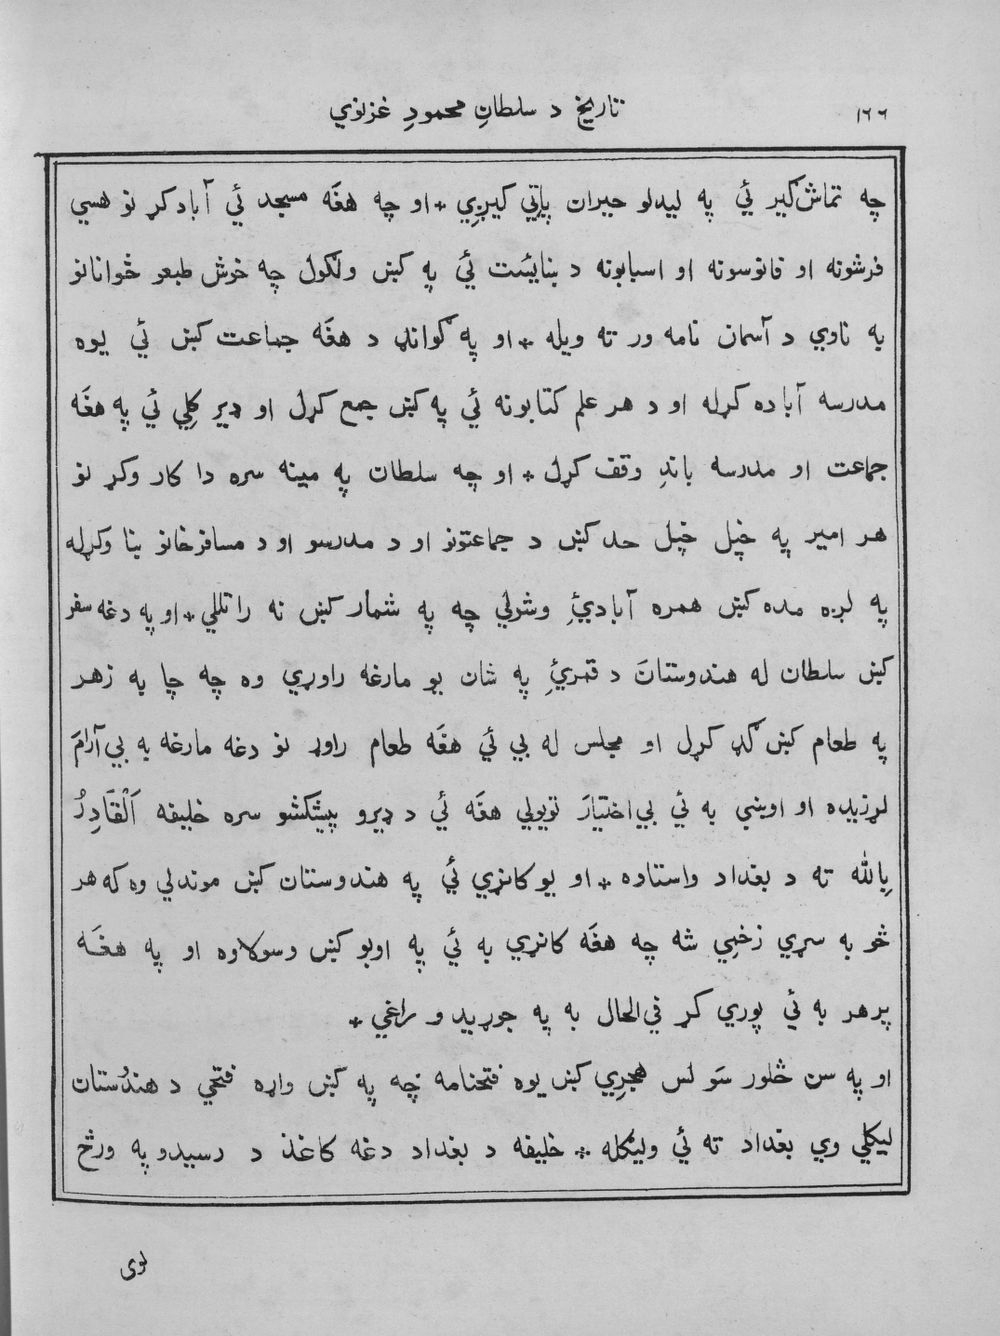 ١٦٦ تاریخ د سلطانِ محمودِ غزنوي
چه تماش‌گیر ئي په لیدلو حیران پاتي کیږي * او چه هغَه مسجد ئي آباد کړ نو هسي
فرشونه او فانوسونه او اسبابونه د ښایښت ئي په کښ ولګول چه خوش طبعو ځوانانو
به ناوي د آسمان نامه ور ته ویله * او په ګوانډ د هغَه جماعت کښ ئي یوه
مدرسه آباده کړله او د هر علم کتابونه ئي په کښ جمع کړل او ډیر کلِي ئي په هغَه
جماعت او مدرسه باندِ وقف کړل * او چه سلطان په مینه سره دا کار وکړ نو
هر امیر په خپل خپل حد کښ د جماعتونو او د مدرسو او د مسافرخانو بنا وکړله
په لږه مده کښ همره آبادئِ وشولي چه په شمار کښ نه راتللي * او په دغه سفر
کښ سلطان له هندوستانَ د قمرئِ په شان یو مارغه راوړي وه چه چا به زهر
په طعام کښ ګډ کړل او مجلس له بي ئي هغَه طعام راوړ نو دغه مارغه به بي‌آرامَ
لړزیده او اوښي به ئي بي‌اختیارَ تویولي هغَه ئي د ډیرو پیشکشو سره خلیفه اَلْقَادِرُ
بِالله ته د بغداد واستاوه * او یو کانړي ئي په هندوستان کښ موندلي وه که هر
څو به سړي زخمِي شه چه هغَه کانړي به ئي په اوبو کښ وسولاوه او په هغَه
پرهر به ئي پوري کړ في‌الحال به په جوړیدو راغي *
او په سن څلور سَو لس هجرِي کښ یوه فتحنامه چه په کښ واړه فتحي د هندُستان
لیکلي وي بغداد ته ئي ولیکله * خلیفه د بغداد دغه کاغذ د رسیدو په ورځ
لوی